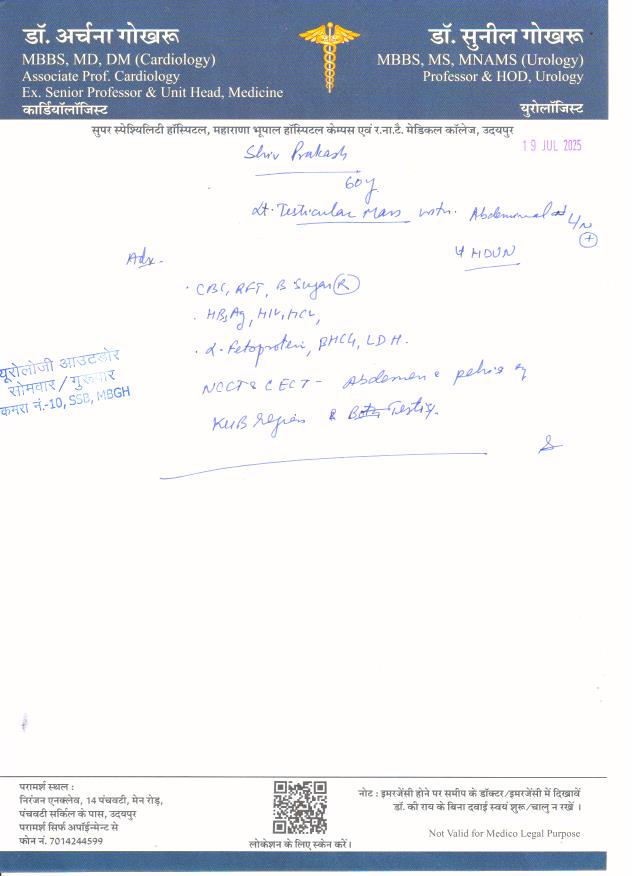 डॉ. अर्चना गोखरू
MBBS, MD, DM (Cardiology)
Associate Prof. Cardiology
Ex. Senior Professor & Unit Head, Medicine
कार्डियॉलॉजिस्ट
डॉ. सुनील गोखरू
MBBS, MS, MNAMS (Urology)
Professor & HOD, Urology
युरोलॉजिस्ट
सुपर स्पेशियलिटी हॉस्पिटल, महाराणा भूपाल हॉस्पिटल केम्पस एवं र.ना.टै. मेडिकल कॉलेज, उदयपुर
19 JUL 2025
Shiv Prakash
60y
Lt. Testicular Mass with. Abdominal L/N +
HDUN
Adv.
. CBC, RFT, B Sugar (R)
. HBsAg, HIV, HCV,
. α-Fetoprotein, βHCG, LDH.
NCCT & CECT - Abdomen & pelvis
KUB region & Testis.
यूरोलोजी आउटडोर
सोमवार / गुरूवार
कमरा नं.-10, SSB, MBGH
परामर्श स्थल :
निरंजन एनक्लेव, 14 पंचवटी, मेन रोड़,
पंचवटी सर्किल के पास, उदयपुर
परामर्श सिर्फ अपॉईन्मेन्ट से
फोन नं. 7014244599
लोकेशन के लिए स्केन करें।
नोट : इमरजेंसी होने पर समीप के डॉक्टर/इमरजेंसी में दिखावें
डॉ. की राय के बिना दवाई स्वयं शुरू/चालु न रखें ।
Not Valid for Medico Legal Purpose